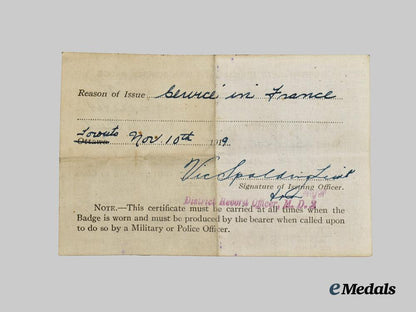 Reason of Issue Service in France
Toronto
Ottawa Nov 10th 1919
Vic Spalding Lieut
Signature of Issuing Officer.
for
District Record Officer, M. D. 2
NOTE.—This certificate must be carried at all times when the
Badge is worn and must be produced by the bearer when called upon
to do so by a Military or Police Officer.
eMedals